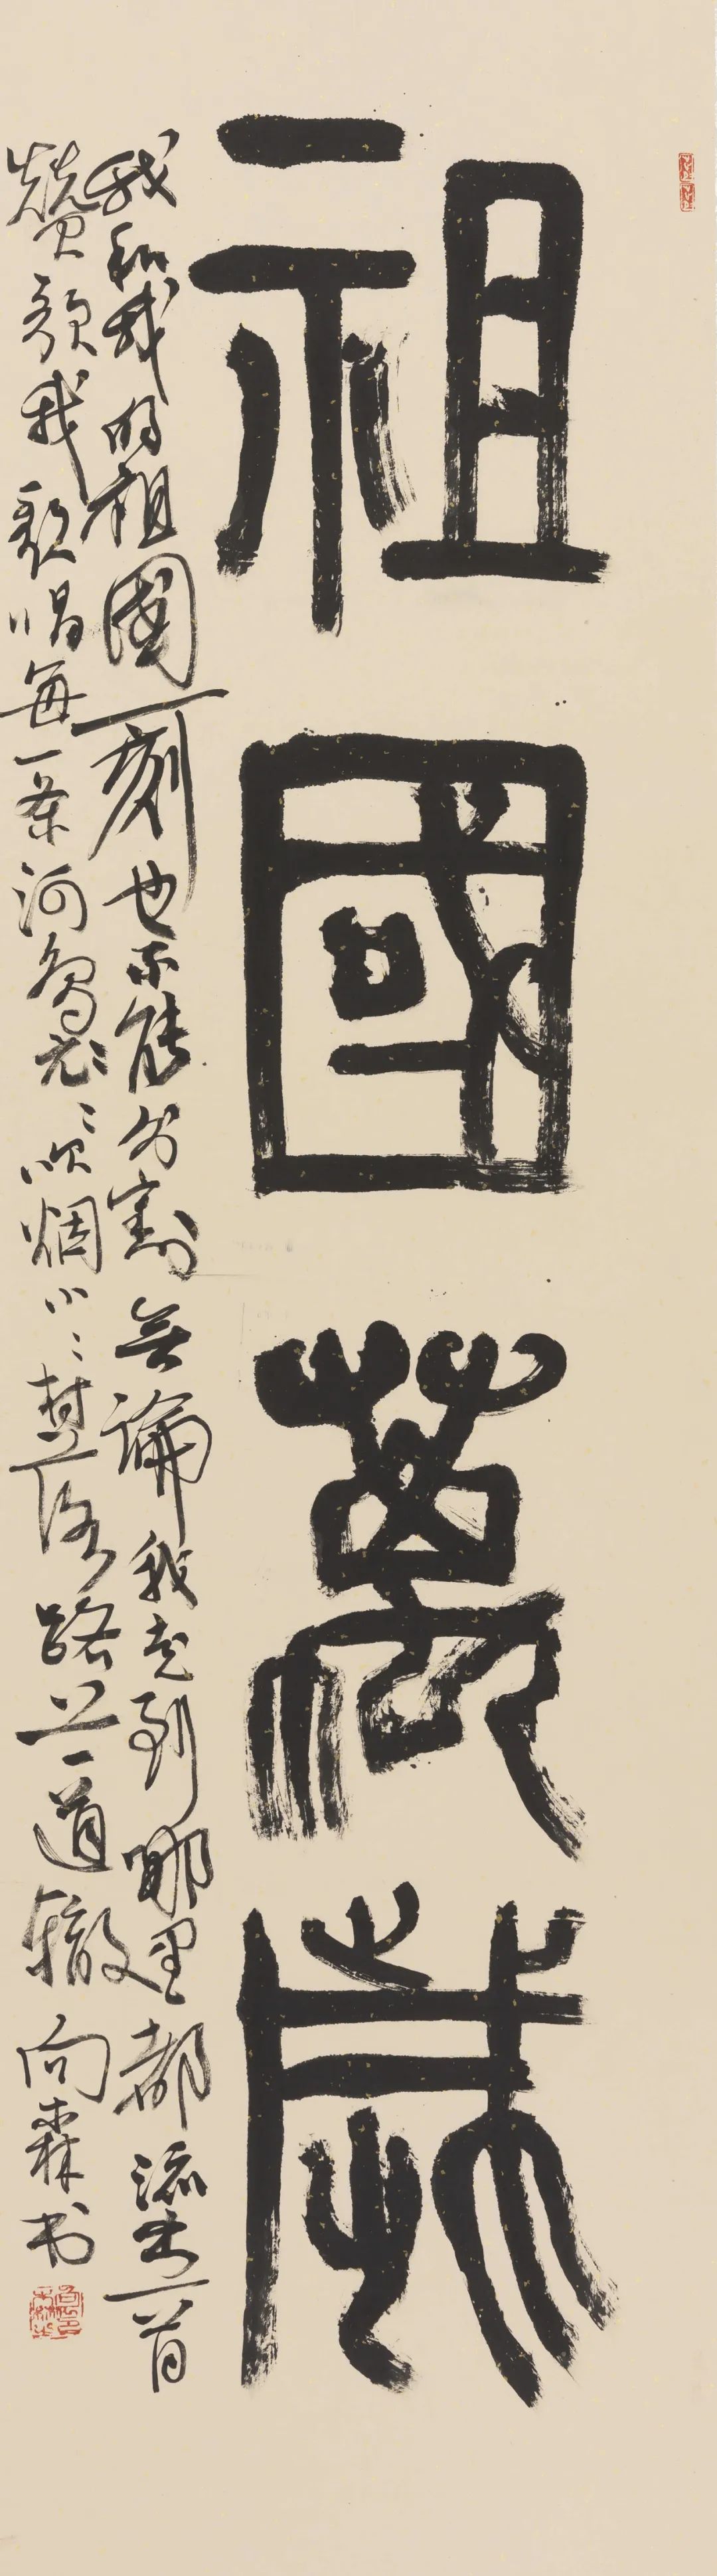 祖國萬歲
我和我的祖國一刻也不能分割無論我走到哪里都流出一首
贊歌我歌唱每一条河裊〻炊烟小〻村落路上一道轍向森书